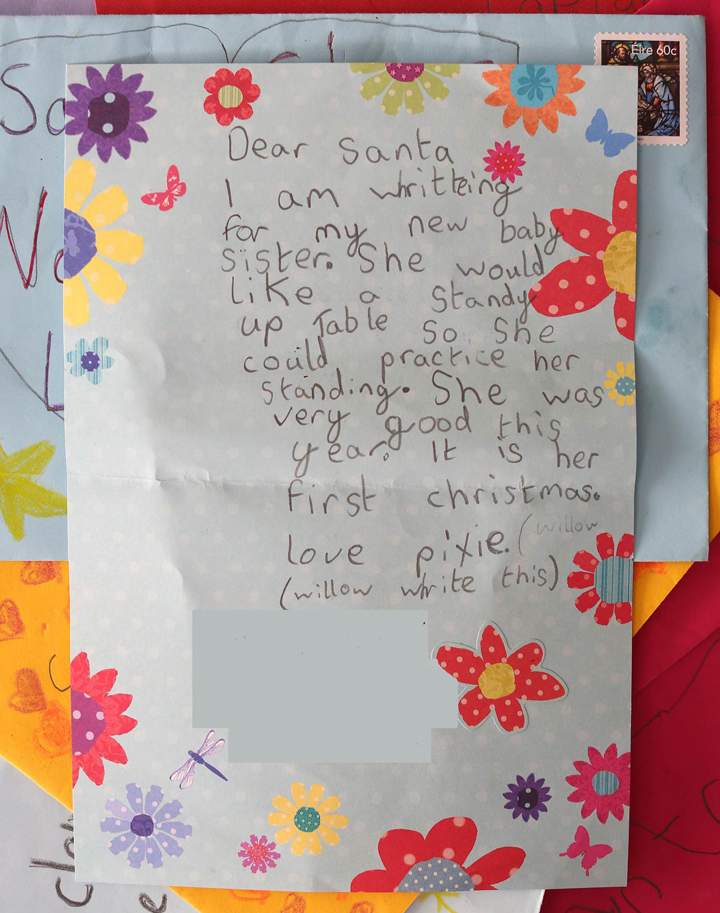 Éire 60c
Dear Santa
I am whritteing
for my new baby
sister. She would
like a standy
up Table so she
could practice her
standing. She was
very good this
year. It is her
first christmas.
love pixie. (willow
(willow write this)